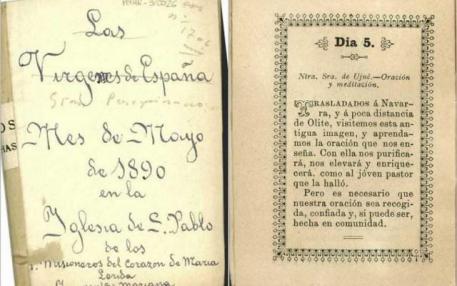 Las
Virgenes de España
Mes de Mayo
de 1890
en la
Iglesia de S. Pablo
de los
Misioneros del Corazon de Maria
OS
HAS
Dia 5.
Ntra. Sra. de Ujué.—Oración
y meditación.
TRASLADADOS á Navar-
ra, y á poca distancia
de Olite, visitemos esta an-
tigua imagen, y aprenda-
mos la oración que nos en-
seña. Con ella nos purifica-
rá, nos elevará y enrique-
cerá. como al jóven pastor
que la halló.
Pero es necesario que
nuestra oración sea recogi-
da, confiada y, si puede ser,
hecha en comunidad.